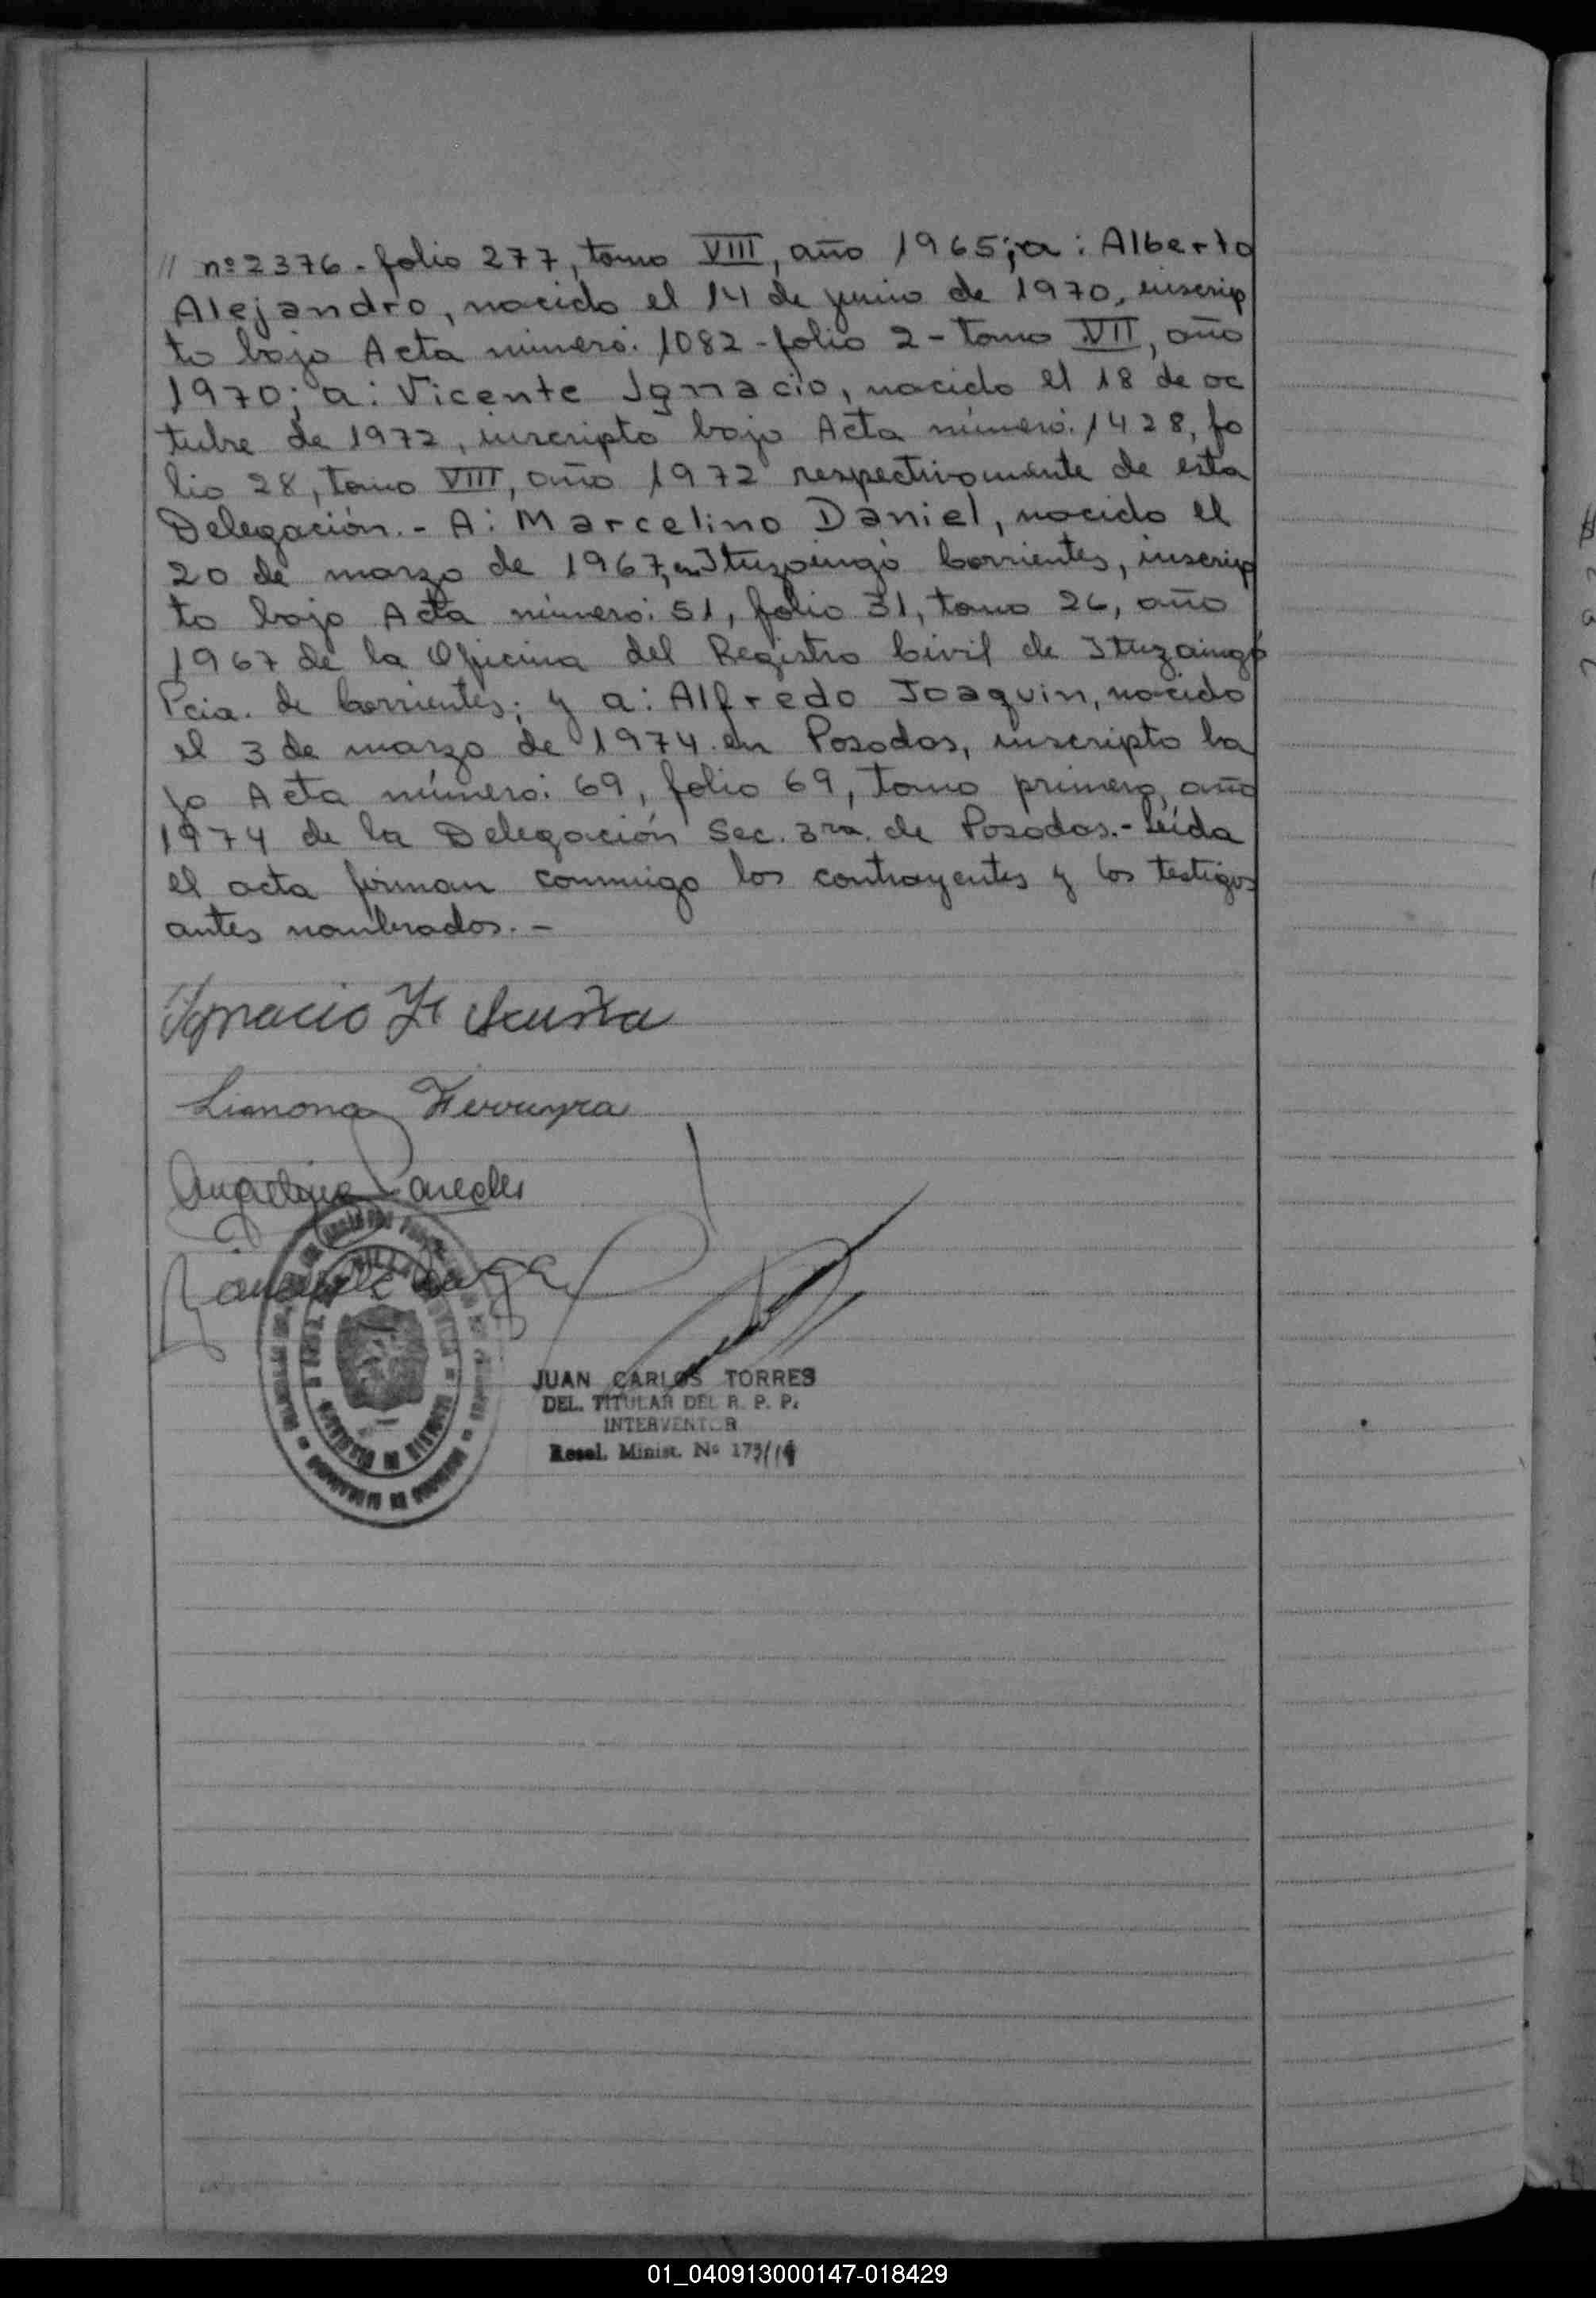 // nº 2376 - folio 277, tomo VIII, año 1965; a: Alberto
Alejandro, nacido el 14 de junio de 1970, inscrip
to bajo Acta número: 1082 - folio 2 - tomo VII, año
1970; a: Vicente Ignacio, nacido el 18 de oc
tubre de 1972, inscripto bajo Acta número: 1428, fo
lio 28, tomo VIII, año 1972 respectivamente de esta
Delegación.- A: Marcelino Daniel, nacido el
20 de marzo de 1967, en Ituzaingó Corrientes, inscrip
to bajo Acta número: 51, folio 31, tomo 26, año
1967 de la Oficina del Registro Civil de Ituzaingó
Pcia. de Corrientes; y a: Alfredo Joaquin, nacido
el 3 de marzo de 1974 en Posadas, inscripto ba
jo Acta número: 69, folio 69, tomo primero, año
1974 de la Delegación Sec. 3ra. de Posadas.- Leída
el acta firman conmigo los contrayentes y los testigos
antes nombrados.-
Ignacio Acuña
Simona Ferreyra
Angelina Paredes
JUAN CARLOS TORRES
DEL. TITULAR DEL R. P. P.
INTERVENTOR
Resol. Minist. Nº 175/
01_040913000147-018429